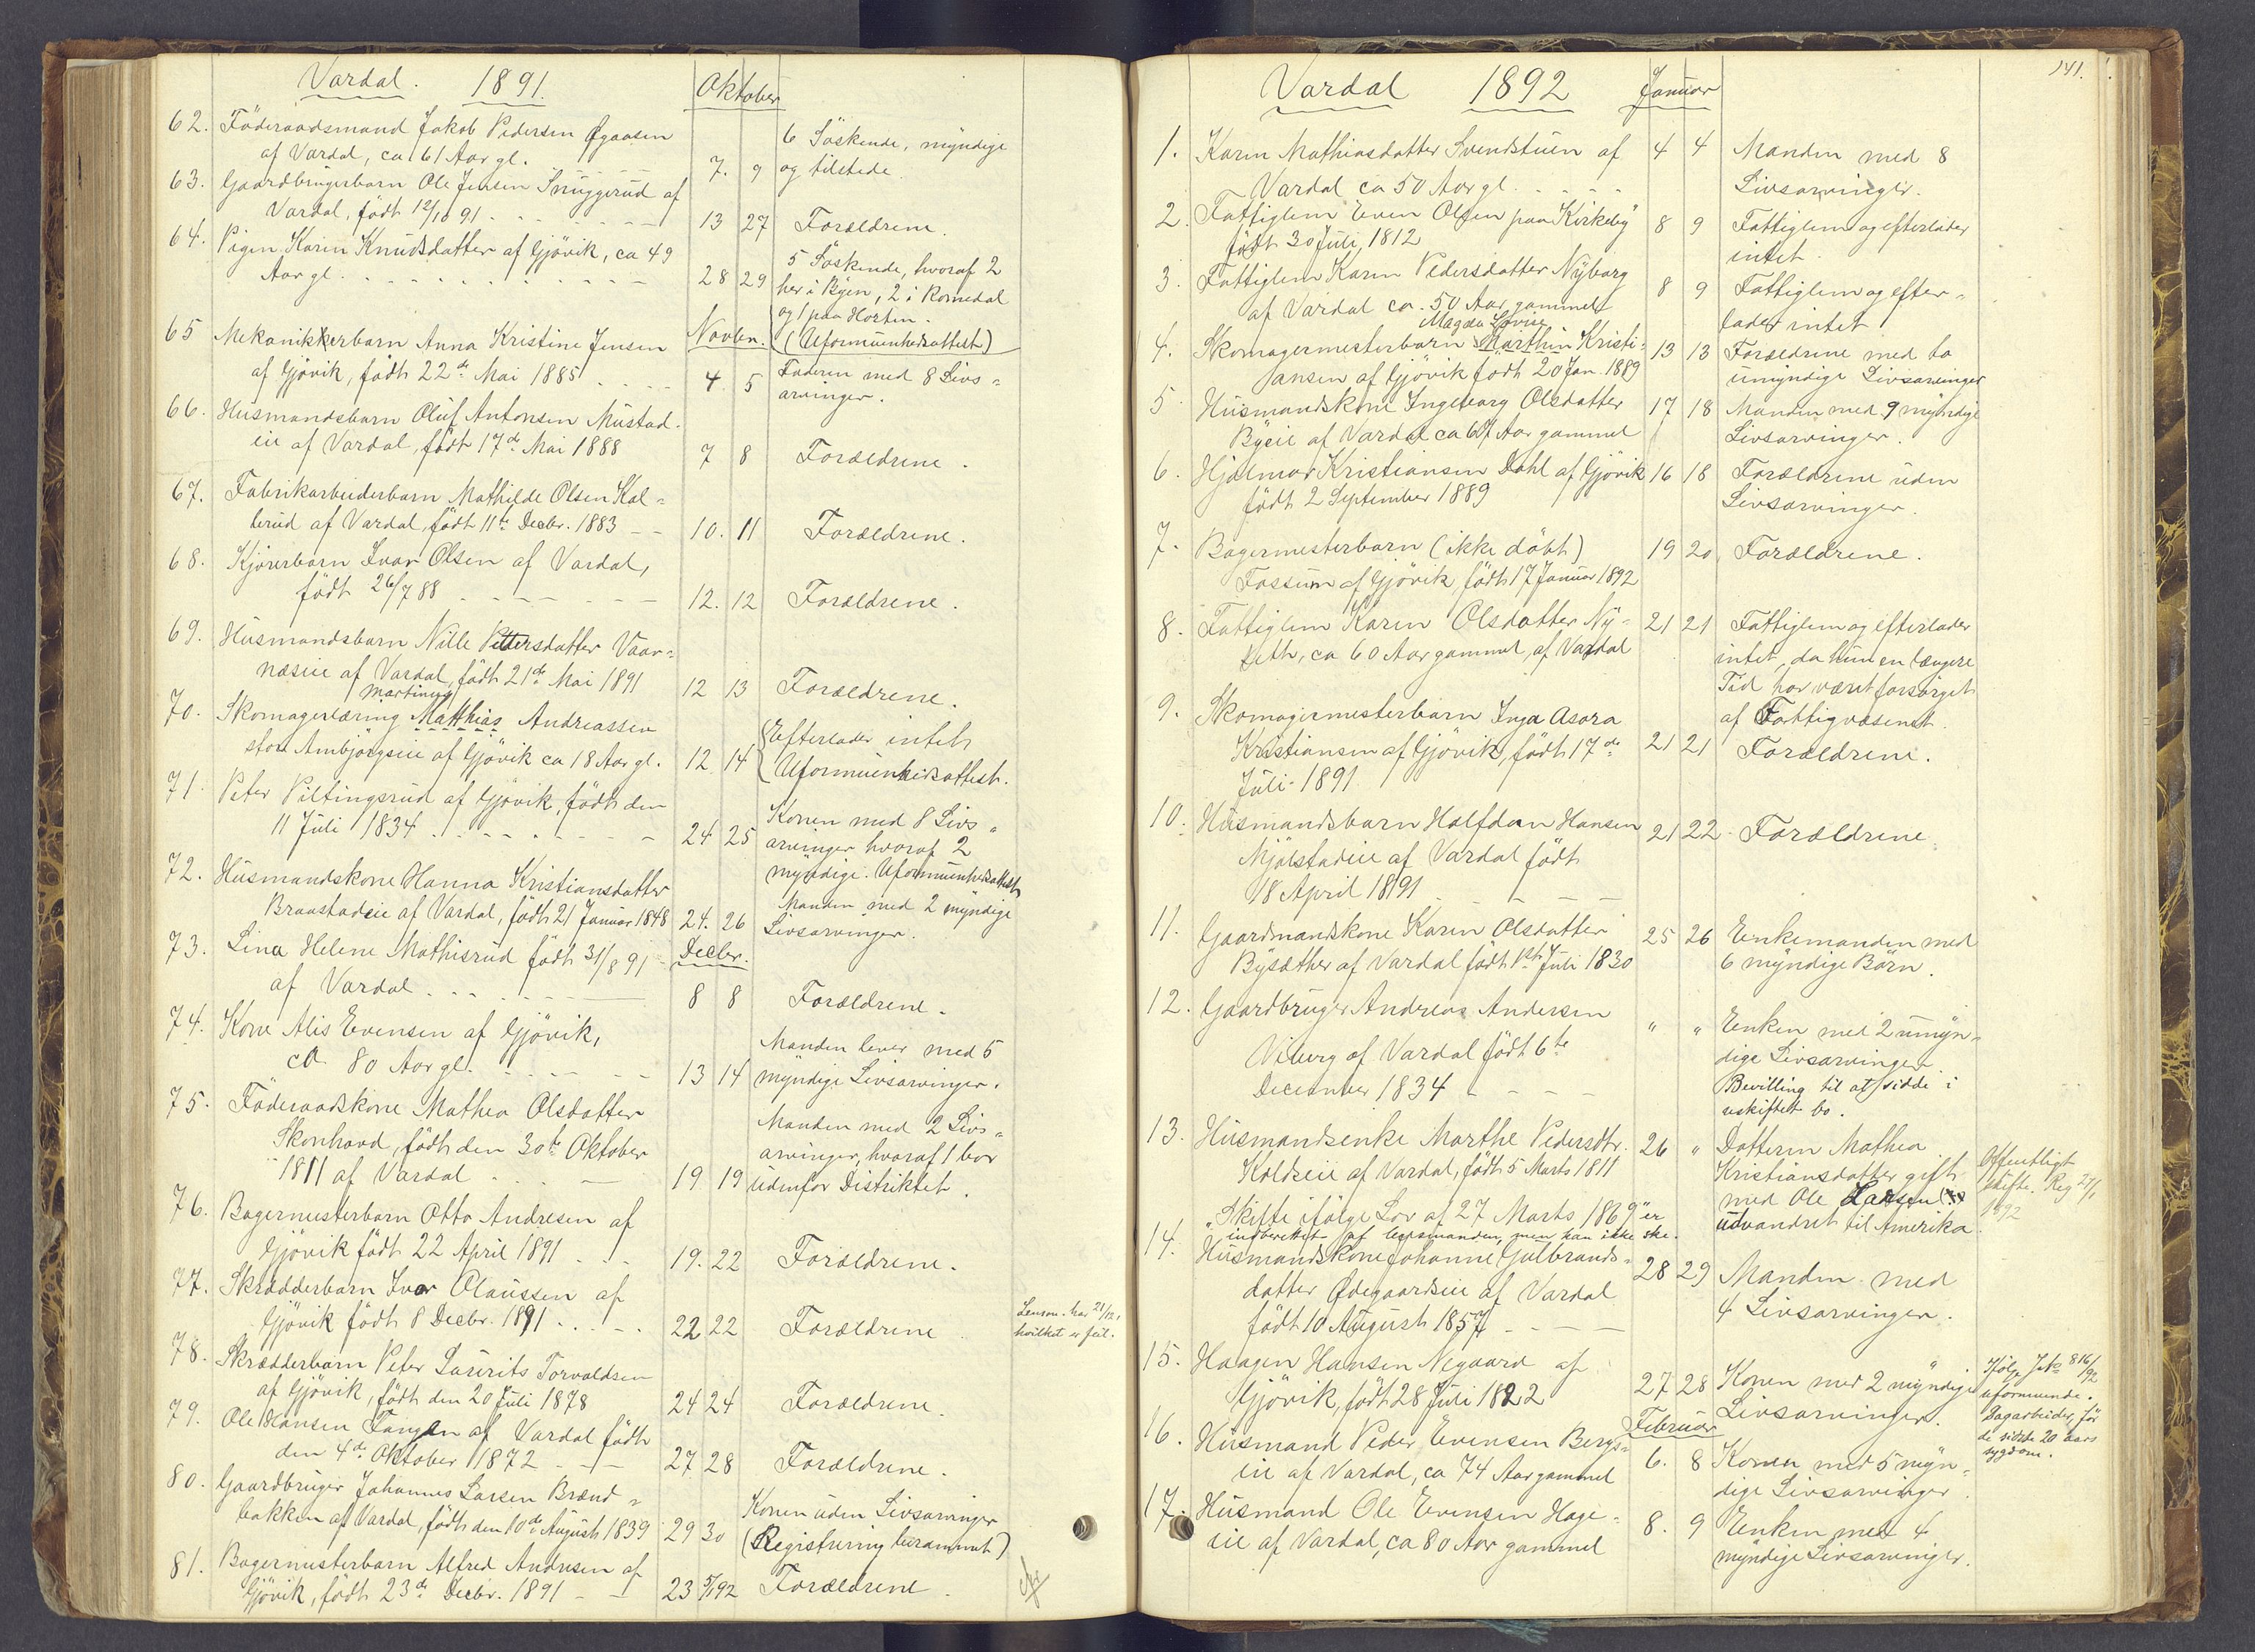 Vardal. 1891. Oktober
62. Föderaadsmand Jakob Pedersen Øgaasen
af Vardal, ca 61 Aar gl. 7. 9 6 Söskende, myndige
og tilstede.
63. Gaardbrugerbarn Ole Jensen Snuggerud af
Vardal, födt 12/10 91 13 27 Forældrene.
64. Pigen Karin Knudsdatter af Gjövik, ca 49
Aar gl. 28 29 5 Söskende, hvoraf 2
her i Byen, 2 i Romedal
og 1 paa Horten.
(Uformuenhedsattest)
Novbr.
65 Mekanikkerbarn Anna Kristine Jensen
af Gjövik, födt 22de Mai 1885 4. 5 Faderen med 8 Livs-
arvinger.
66. Husmandsbarn Oluf Antonsen Mustad-
eie af Vardal, födt 17de Mai 1888 7 8 Forældrene.
67. Fabrikarbeiderbarn Mathilde Olsen Kal-
lerud af Vardal, födt 11te Decbr. 1883 10. 11 Forældrene.
68. Kjörerbarn Ivar Olsen af Vardal,
födt 26/7 88 12. 12 Forældrene.
69. Husmandsbarn Nille Pettersdatter Vaar-
næseie af Vardal, födt 21de Mai 1891 12 13 Forældrene.
Martinus
70. Skomagerlæring Matthias Andreassen
store Ambjörgseie af Gjövik ca 18 Aar gl. 12. 14 Efterlader intet
Uformuenhedsattest.
71. Peter Piltingsrud af Gjövik, födt den
11 Juli 1834 24 25 Konen med 8 Livs-
arvinger hvoraf 2
myndige. Uformuenhedsattest
72. Husmandskone Hanna Kristiansdatter
Braastadeie af Vardal, födt 21 Januar 1848 24. 26 Manden med 2 myndige
Livsarvinger.
Decbr.
73. Lina Helene Mathisrud födt 31/8 91
af Vardal 8 8 Forældrene.
74. Kone Alis Evensen af Gjövik,
ca 80 Aar gl. 13 14 Manden lever med 5
myndige Livsarvinger.
75. Föderaadskone Mathea Olsdatter
Skonhovd, födt den 30te Oktober
1811 af Vardal 19 19 Manden med 2 Livs-
arvinger, hvoraf 1 bor
udenfor Distriktet.
76. Bagermesterbarn Otto Andresen af
Gjövik födt 22 April 1891 19. 22 Forældrene.
77. Skrædderbarn Ivar Olaussen af
Gjövik födt 8 Decbr. 1891 22 22 Forældrene
Lensm. har 21/12,
hvilket er feil.
78. Skrædderbarn Peter Laurits Torvaldsen
af Gjövik, födt den 20 Juli 1878 24 24 Forældrene.
79. Ole Hansen Tangen af Vardal födt
den 4de Oktober 1872 27 28 Forældrene.
80. Gaardbruger Johannes Larsen Brænd-
bakken af Vardal, födt den 10de August 1839 29 30 Konen uden Livsarvinger
(Registrering berammet)
81. Bagermesterbarn Alfred Andresen af
Gjövik, födt 23de Decbr. 1891 23 5/1 92 Forældrene.
141.
Vardal 1892 Januar
1. Karen Mathiasdatter Svendstuen af
Vardal ca 50 Aar gl. 4 4 Manden med 8
Livsarvinger.
2. Fattiglem Even Olsen paa Kirkeby
födt 30 Juli 1812 8 9 Fattiglem og efterlader
intet.
3. Fattiglem Karen Pedersdatter Nyborg
af Vardal ca. 50 Aar gammel 8 9 Fattiglem og efter-
lader intet
Magda Lovise
4. Skomagermesterbarn Marthin Kristi-
ansen af Gjövik födt 20 Jan. 1889 13 13 Forældrene med to
umyndige Livsarvinger
5. Husmandskone Ingeborg Olsdatter
Byeie af Vardal ca 67 Aar gammel 17 18 Manden med 9 myndige
Livsarvinger.
6. Hjalmar Kristiansen Dahl af Gjövik
födt 2 September 1889 16 18 Forældrene uden
Livsarvinger.
7. Bagermesterbarn (ikke döbt)
Fossum af Gjövik, födt 17 Januar 1892 19 20 Forældrene.
8. Fattiglem Karen Olsdatter Ny-
seth, ca 60 Aar gammel, af Vardal 21 21 Fattiglem og efterlader
intet, da hun en længere
Tid har været forsörget
af Fattigvæsenet.
9. Skomagermesterbarn Inga Asora
Kristiansen af Gjövik, födt 17de
Juli 1891 21 21 Forældrene.
10. Husmandsbarn Halfdan Hansen
Mjölstadeie af Vardal födt
18 April 1891 21 22 Forældrene.
11. Gaardmandskone Karen Olsdatter
Bysæther af Vardal födt 1ste Juli 1830 25 26 Enkemanden med
6 myndige Börn.
12. Gaardbruger Andreas Andersen
Viberg af Vardal födt 6te
December 1834 " " Enken med 2 umyn-
dige Livsarvinger.
Bevilling til at sidde i
uskiftet bo.
13. Husmandsenke Marthe Pedersdtr.
Koldseie af Vardal, födt 5 Marts 1811 26 " Datteren Mathea
Kristiansdatter gift
med Ole Larsen
udvandret til Amerika
Offentligt
skifte. Reg 27/1
1892
"Skifte ifölge Lov af 27 Marts 1869" er
indberettet af lensmanden, men kan ikke ske.
14. Husmandskone Johanne Gulbrands-
datter Ødegaardseie af Vardal
födt 10 August 1857 28 29 Manden med
4 Livsarvinger.
15. Haagen Hansen Negaard af
Gjövik, födt 28 Juli 1822 27 28 Konen med 2 myndige
Livsarvinger.
Ifölge Jek 816/92
uformuende.
Dagarbeider, för
de sidste 20 aars
sygdom.
Februar
16. Husmand Peder Evensen Bergs-
eie af Vardal, ca 74 Aar gammel 6. 8 Konen med 5 myn-
dige Livsarvinger
17. Husmand Ole Evensen Hage-
eie af Vardal, ca 80 Aar gammel 8. 9 Enken med 4
myndige Livsarvinger.